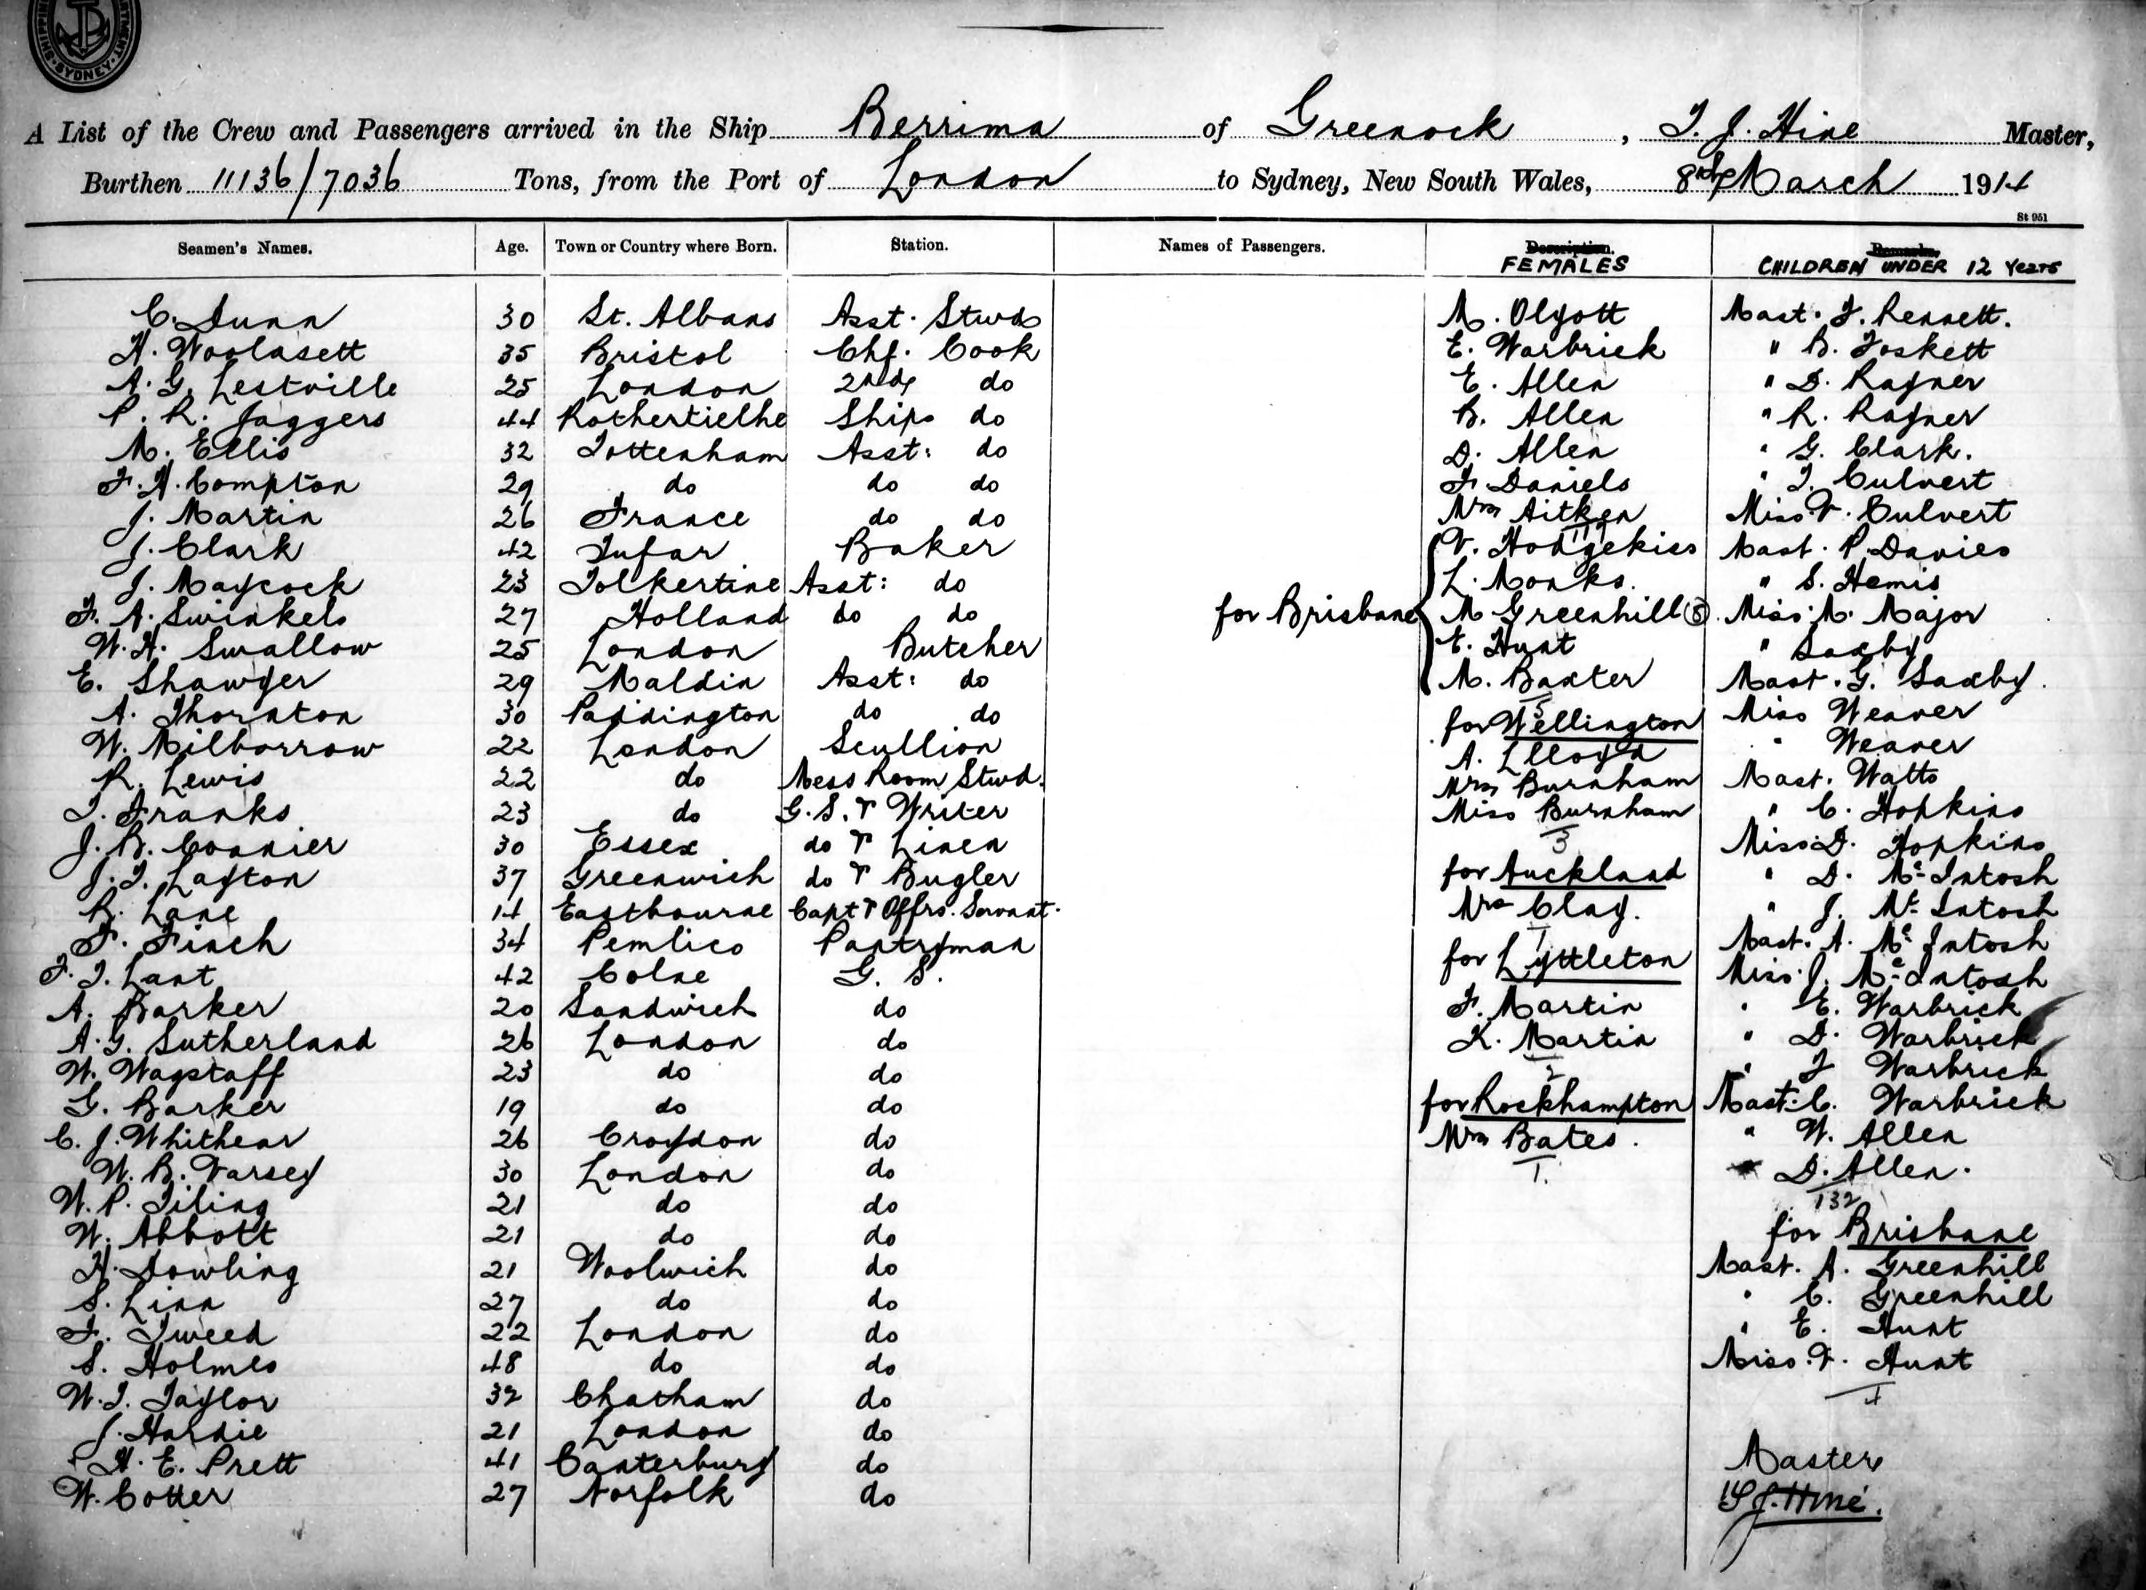 SHIPPING DEPARTMENT SYDNEY
A List of the Crew and Passengers arrived in the Ship Berrima of Greenock, T. J. Hine Master,
Burthen 11136/7036 Tons, from the Port of London to Sydney, New South Wales, 8th March 1914
St 951
Seamen's Names. Age. Town or Country where Born. Station. Names of Passengers. Description. Remarks.
FEMALES CHILDREN UNDER 12 Years
C. Dunn 30 St. Albans Asst. Stwd M. Olyott Mast. F. Rennett.
H. Woolasett 35 Bristol Chf. Cook E. Warbrick " B. Foskett
A. G. Lestville 25 London 2nd do E. Allen " D. Rayner
P. R. Jaggers 44 Rothertielhe Ships do B. Allen " R. Rayner
M. Ellis 32 Tottenham Asst: do D. Allen " G. Clark.
F. H. Compton 29 do do do F. Daniels " T. Culvert
J. Martin 26 France do do Mrs Aitken Miss V. Culvert
J. Clark 42 Tufar Baker V. Hodgekiss Mast. P. Davies
J. Maycock 23 Tolkertine Asst: do L. Monks. " S. Hemis
F. A. Swinkels 27 Holland do do for Brisbane M Greenhill (8) Miss M. Major
W. H. Swallow 25 London Butcher E. Hunt " Saxby
E. Shawyer 29 Maldin Asst: do M. Baxter Mast. G. Saxby.
5
A. Thornton 30 Paddington do do for Wellington Miss Weaver
W. Milborrow 22 London Scullion A. Lloyd " Weaver
R. Lewis 22 do Mess Room Stwd. Mrs Burnham Mast. Watts
T. Franks 23 do G. S. & Writer Miss Burnham " C. Hopkins
3
J. B. Connier 30 Essex do & Linen Miss D. Hopkins
J. T. Layton 37 Greenwich do & Bugler for Auckland " D. McIntosh
B. Lane 14 Eastbourne Capt & Offrs. Servant. Mrs Clay. " J. McIntosh
1
F. Finch 34 Pemlico Pantryman for Lyttleton Mast. A. McIntosh
F. T. Last 42 Colne G. S. Miss J. McIntosh
A. Barker 20 Sandwich do F. Martin " E. Warbrick
A. G. Sutherland 26 London do K. Martin " D. Warbrick
2
W. Wagstaff 23 do do " J Warbrick
G. Barker 19 do do for Rockhampton Mast: C. Warbrick
C. J. Whithear 26 Croydon do Mrs Bates. " W. Allen
1.
W. B. Varsey 30 London do D. Allen.
132
W. P. Tiling 21 do do
W. Abbott 21 do do for Brisbane
H. Dowling 21 Woolwich do Mast. A. Greenhill
S. Linn 27 do do " C. Greenhill
F. Tweed 22 London do " E. Hunt
S. Holmes 48 do do Miss. V. Hunt
4
W. T. Taylor 32 Chatham do
J. Hardie 21 London do
H. E. Prett 41 Canterbury do Master
W. Cotter 27 Norfolk do T J. Hine.